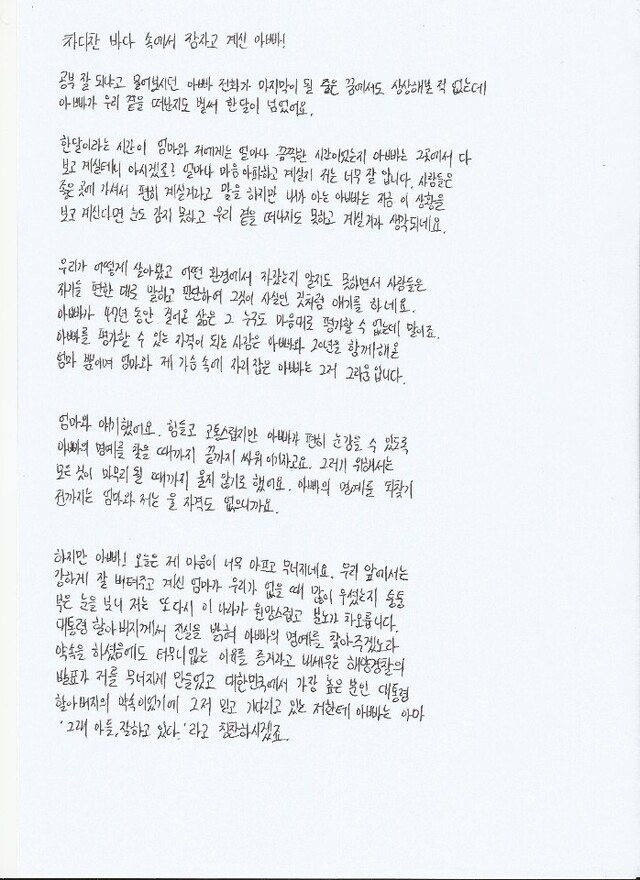 차디찬 바다 속에서 잠자고 계신 아빠!
공부 잘 되냐고 물어보시던 아빠 전화가 마지막이 될 줄은 꿈에서도 상상해본 적 없는데
아빠가 우리 곁을 떠난지도 벌써 한달이 넘었어요.
한달이라는 시간이 엄마와 저에게는 얼마나 끔찍한 시간이었는지 아빠는 그곳에서 다
보고 계실테니 아시겠죠? 얼마나 마음 아파하고 계실지 저는 너무 잘 압니다. 사람들은
좋은 곳에 가셔서 편히 계실거라고 말을 하지만 내가 아는 아빠는 지금 이 상황을
보고 계신다면 눈도 감지 못하고 우리 곁을 떠나지도 못하고 계실거라 생각되네요.
우리가 어떻게 살아왔고 어떤 환경에서 자랐는지 알지도 못하면서 사람들은
자기들 편한 대로 말하고 판단하여 그것이 사실인 것처럼 얘기를 하네요.
아빠가 47년 동안 걸어온 삶은 그 누구도 마음대로 평가할 수 없는데 말이죠.
아빠를 평가할 수 있는 자격이 되는 사람은 아빠와 20년을 함께해온
엄마 뿐이며 엄마와 제 가슴 속에 자리잡은 아빠는 그저 그리움입니다.
엄마와 얘기했어요. 힘들고 고통스럽지만 아빠가 편히 눈감을 수 있도록
아빠의 명예를 찾을 때까지 끝까지 싸워 이기자고요. 그러기 위해서는
모든 것이 마무리 될 때까지 울지 않기로 했어요. 아빠의 명예를 되찾기
전까지는 엄마와 저는 울 자격도 없으니까요.
하지만 아빠! 오늘은 제 마음이 너무 아프고 무너지네요. 우리 앞에서는
강하게 잘 버텨주고 계신 엄마가 우리가 없을 때 많이 우셨는지 퉁퉁
부은 눈을 보니 저는 또다시 이 나라가 원망스럽고 분노가 차오릅니다.
대통령 할아버지께서 진실을 밝혀 아빠의 명예를 찾아주겠노라
약속을 하셨음에도 터무니없는 이유를 증거라고 내세우는 해양경찰의
발표가 저를 무너지게 만들었고 대한민국에서 가장 높은 분인 대통령
할아버지의 약속이었기에 그저 믿고 기다리고 있는 저한테 아빠는 아마
'그래 아들, 잘하고 있다.'라고 칭찬하시겠죠.